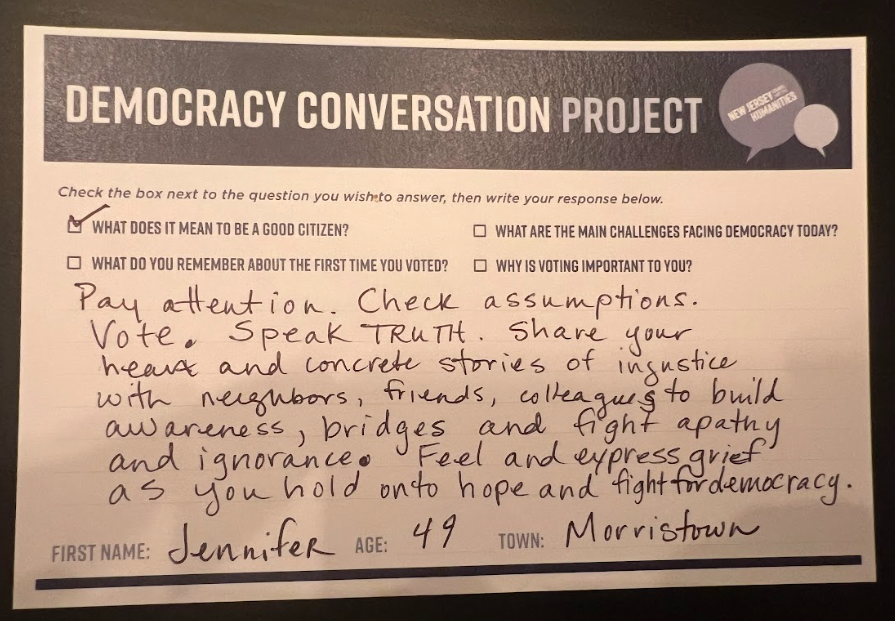 DEMOCRACY CONVERSATION PROJECT
NEW JERSEY
HUMANITIES
Check the box next to the question you wish to answer, then write your response below.
WHAT DOES IT MEAN TO BE A GOOD CITIZEN?
WHAT ARE THE MAIN CHALLENGES FACING DEMOCRACY TODAY?
WHAT DO YOU REMEMBER ABOUT THE FIRST TIME YOU VOTED?
WHY IS VOTING IMPORTANT TO YOU?
Pay attention. Check assumptions.
Vote. Speak TRUTH. Share your
heart and concrete stories of injustice
with neighbors, friends, colleagues to build
awareness, bridges and fight apathy
and ignorance. Feel and express grief
as you hold onto hope and fight for democracy.
FIRST NAME: Jennifer AGE: 49 TOWN: Morristown